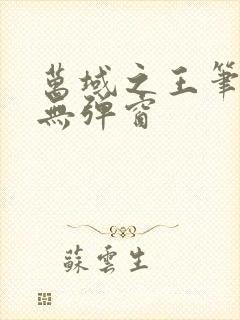 萬域之王筆
無彈窗
蘇雲生